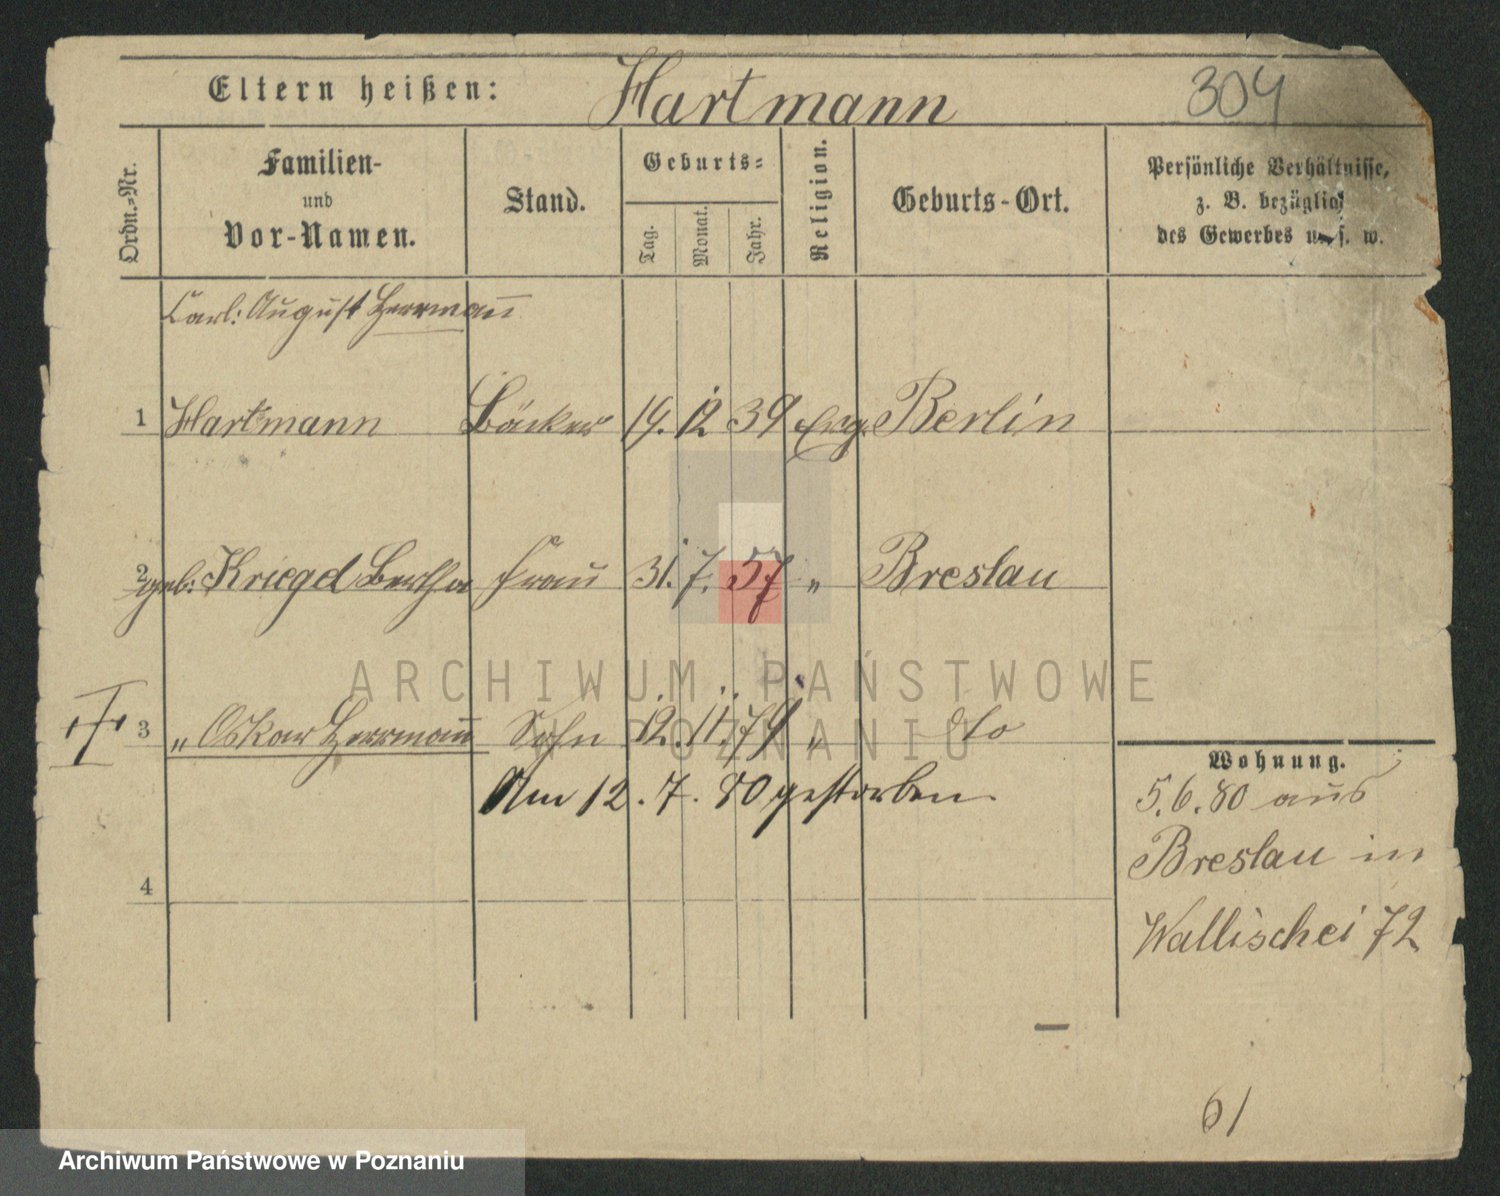 Eltern heißen: Hartmann 304
Ordn.-Nr.
Familien-
und
Vor-Namen.
Stand.
Geburts-
Tag.
Monat.
Jahr.
Religion.
Geburts-Ort.
Persönliche Verhältnisse,
z. B. bezüglich
des Gewerbes u. s. w.
Carl: August Herrmann
1 Hartmann Bäcker 19. 12 39 Evg. Berlin
2 geb: Kriegel Bertha Frau 31. 7. 57 „ Breslau
3 „ Oskar Herrmann Sohn 12. 11. 79 „ dto
Am 12. 7. 80 gestorben.
4
Wohnung.
5.6.80 aus
Breslau in
Wallischei 72
61
ARCHIWUM PAŃSTWOWE
W POZNANIU
Archiwum Państwowe w Poznaniu